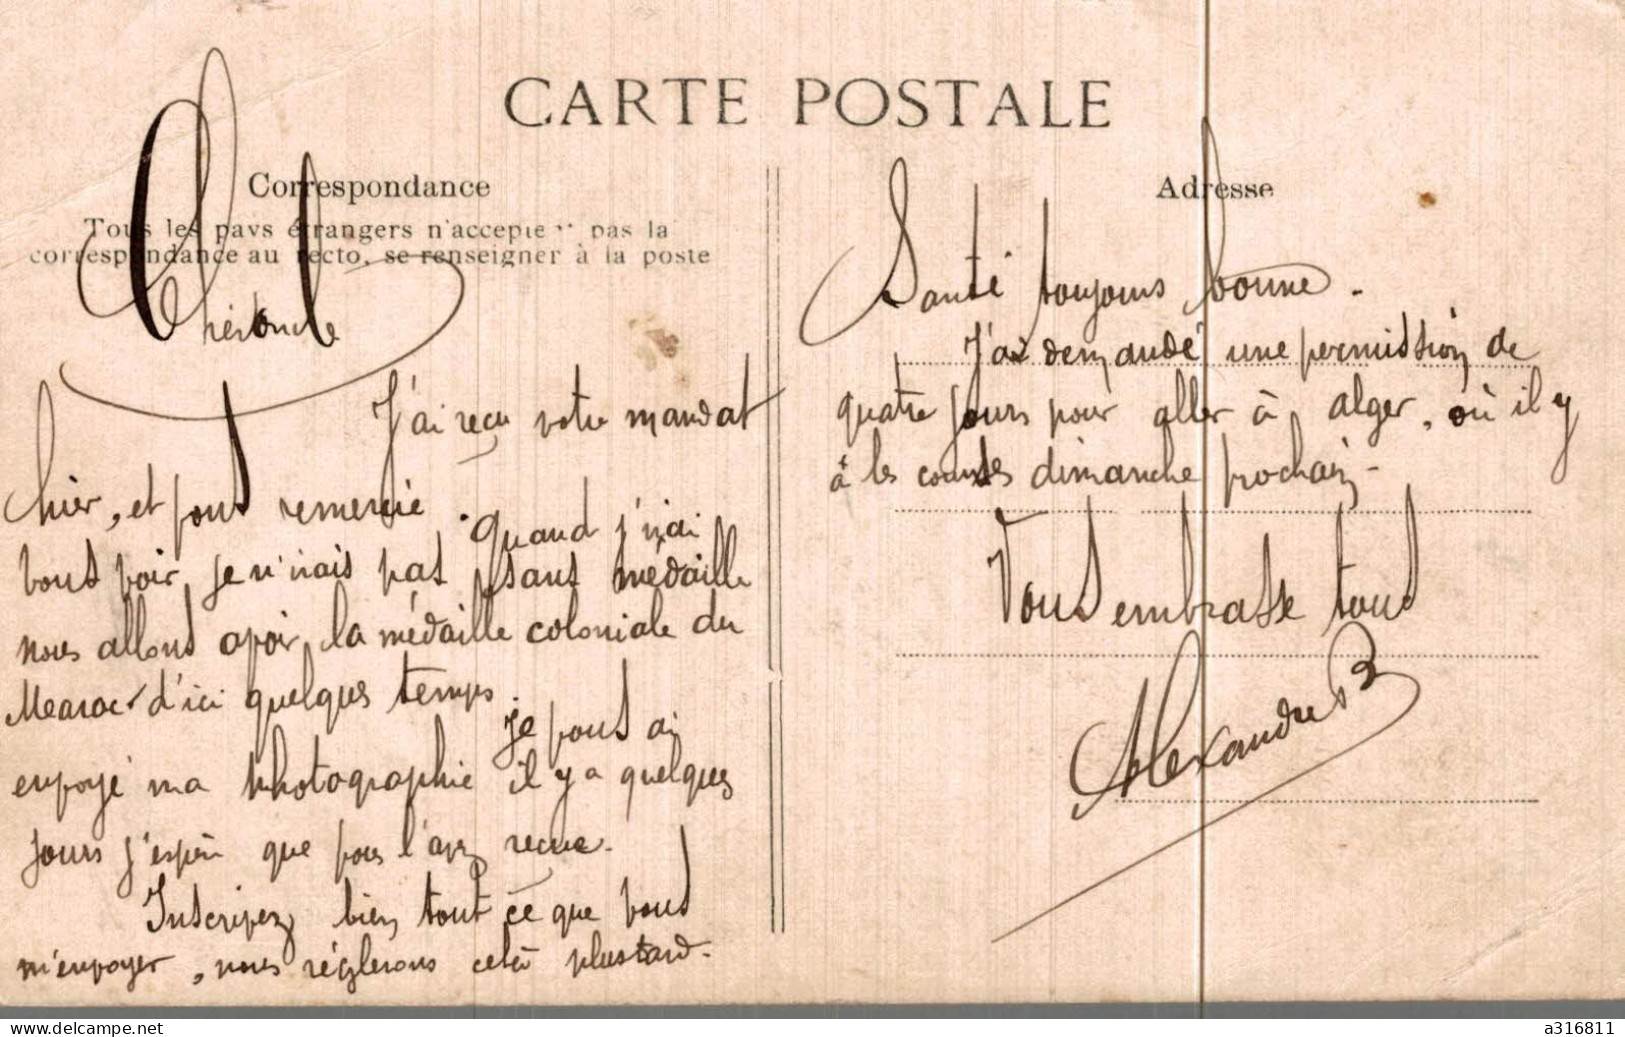 CARTE POSTALE
Correspondance
Tous les pays étrangers n'acceptent pas la
correspondance au recto, se renseigner à la poste
J'ai reçu votre mandat
hier, et vous remercie.
Quand j'irai
vous voir, je n'irais pas sans médaille
nous allons avoir la médaille coloniale du
Maroc d'ici quelques temps.
Je vous ai
envoyé ma photographie il y a quelques
jours j'espère que vous l'avez recue.
Inscrivez bien tout ce que vous
m'envoyer, nous réglerons celà plustard.
Adresse
Santé toujours bonne.
J'ai demandé une permission de
quatre jours pour aller à alger, où il y
à les courses dimanche prochain -
Vous embrasse tous
Alexandre B
www.delcampe.net
a316811